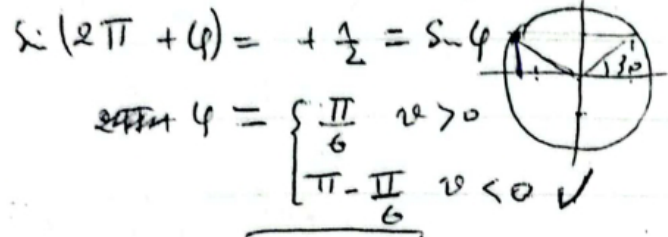 Sin (2π + φ) = + 1/2 = Sin φ
φ = { π/6 v > 0
π - π/6 v < 0 ✓
30